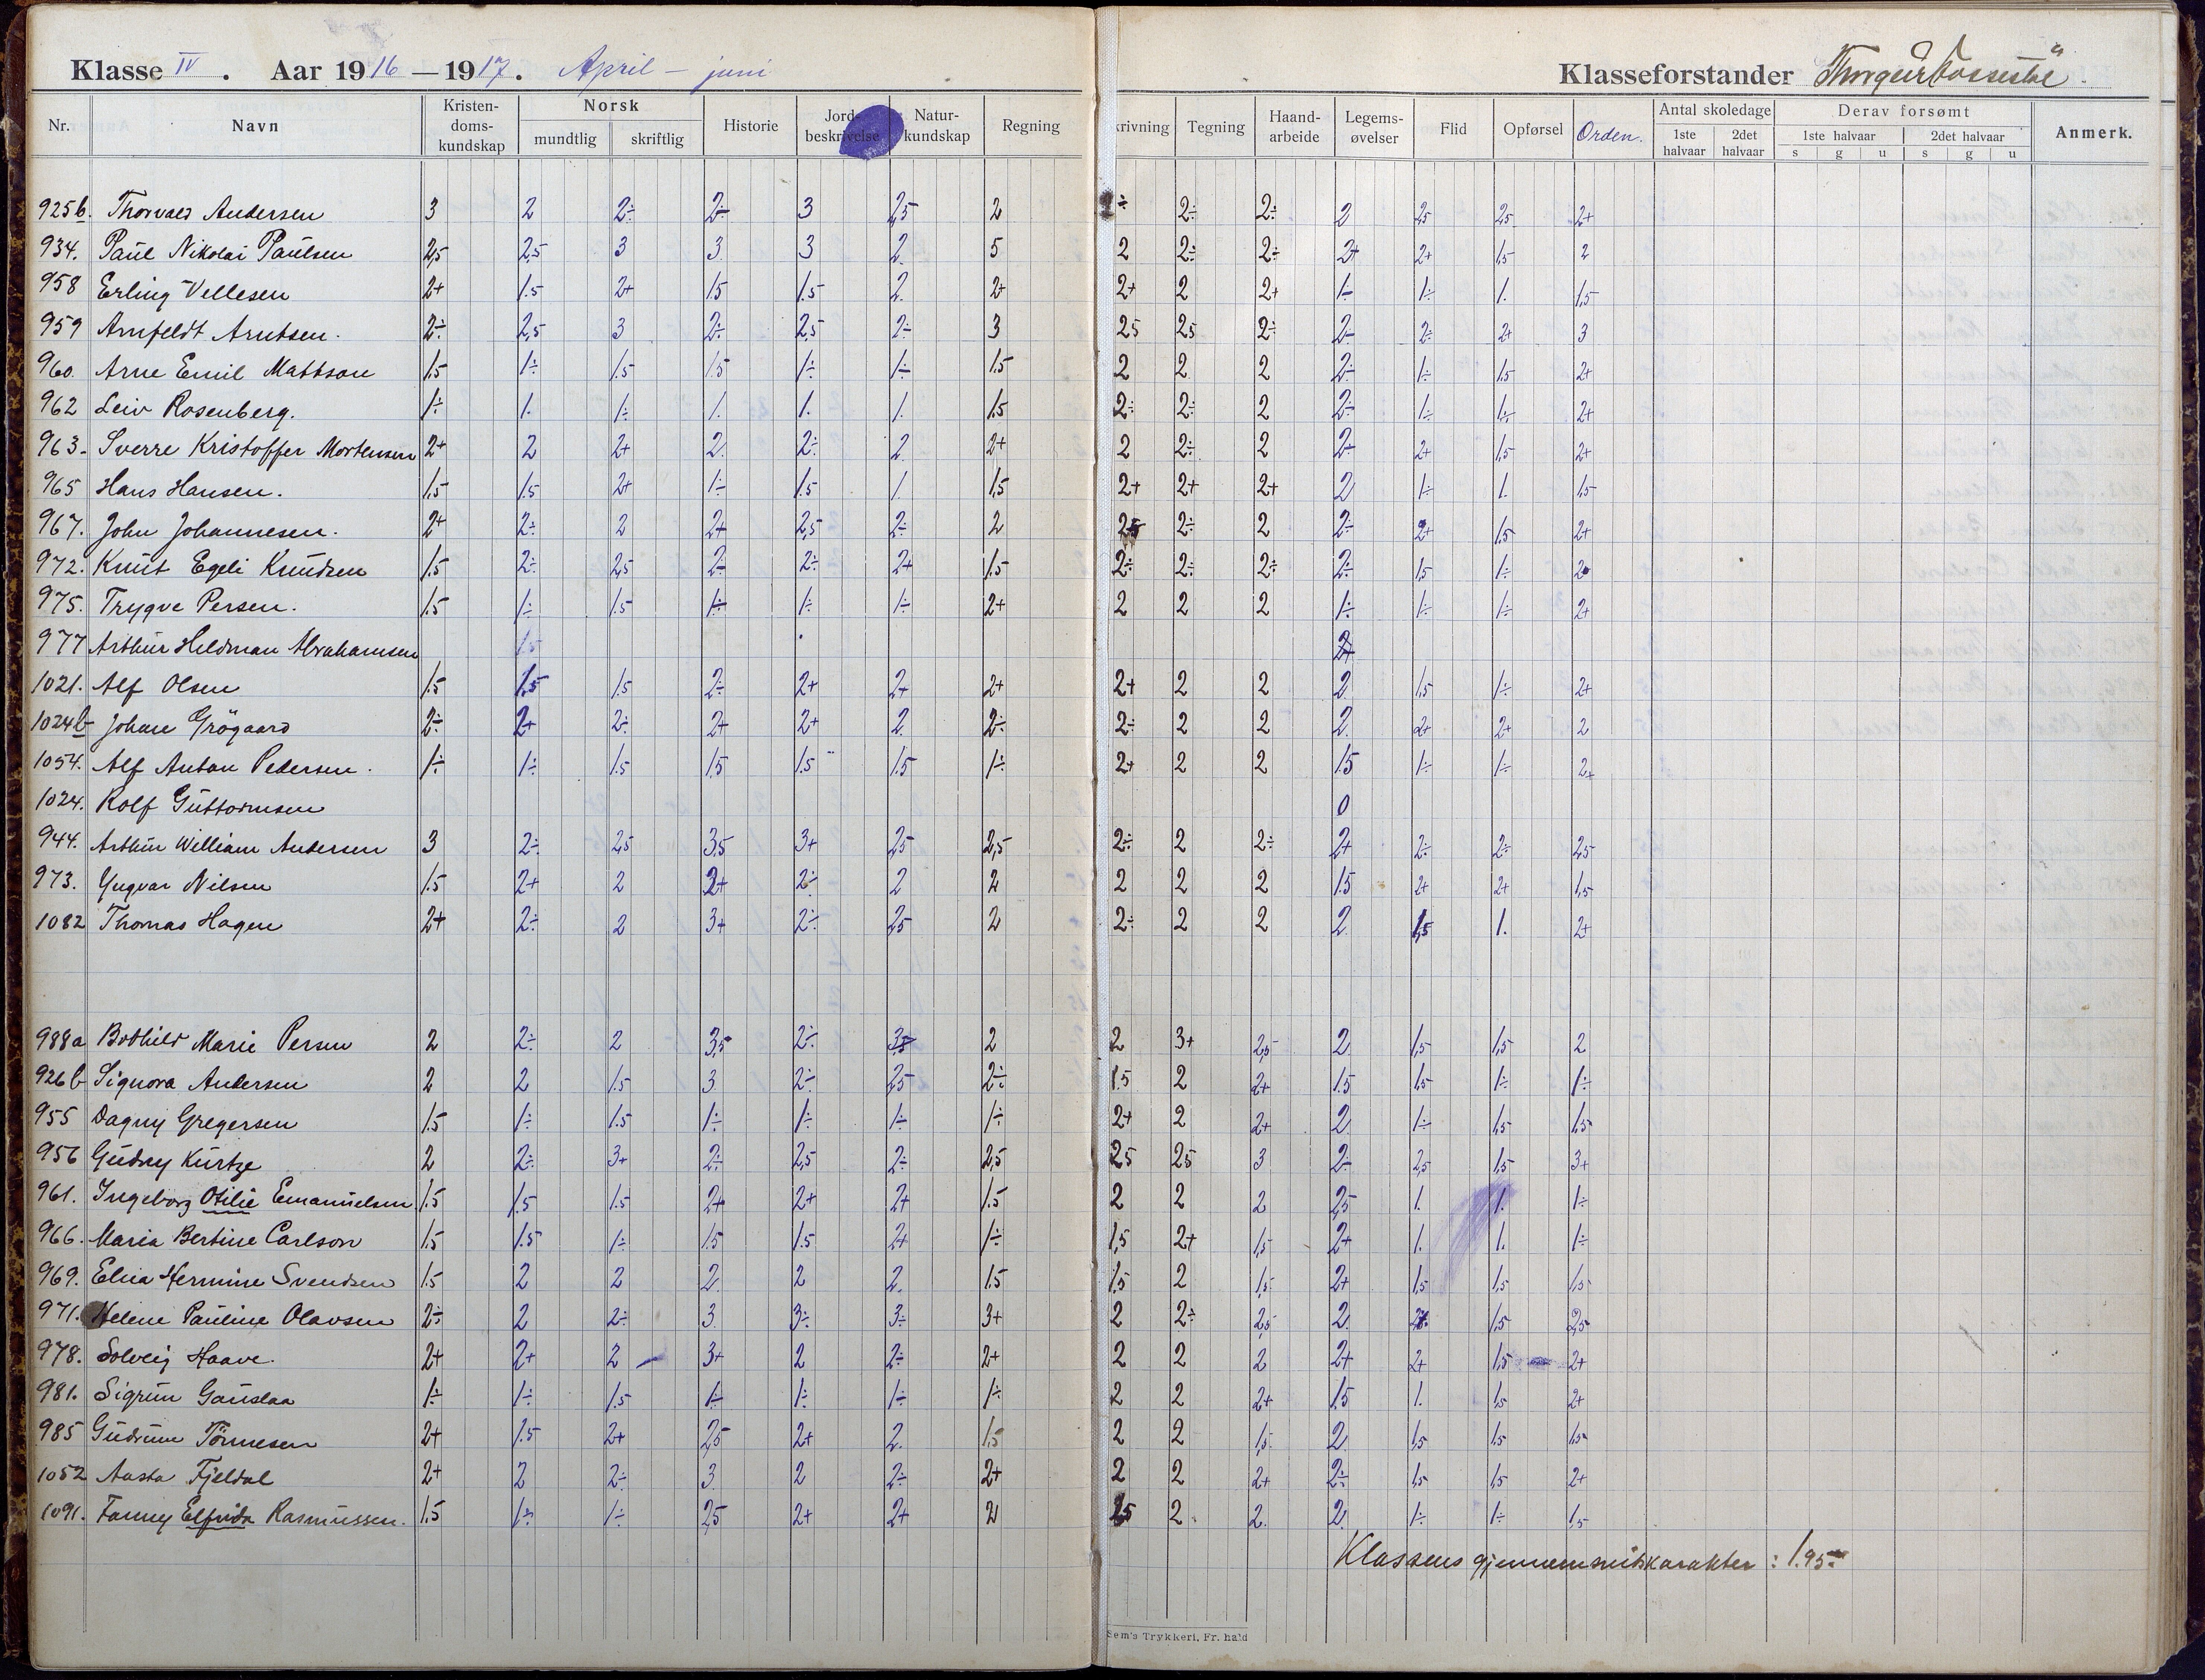 Klasse IV. Aar 1916 — 1917. April — juni Klasseforstander
Nr. Navn Kristendomskundskap Norsk mundtlig skriftlig Historie Jordbeskrivelse Naturkundskap Regning krivning Tegning Haandarbeide Legemsøvelser Flid Opførsel Orden. Antal skoledage 1ste halvaar 2det halvaar Derav forsømt 1ste halvaar s g u 2det halvaar s g u Anmerk.
925b. Thorvald Andersen 3 2 2÷ 2÷ 3 2,5 2 ÷ 2÷ 2÷ 2 2,5 2,5 2+
934. Paul Nikolai Paulsen 2,5 2,5 3 3 3 2 5 2 2÷ 2÷ 2+ 2+ 1,5 2
958 Erling Vellesen 2+ 1.5 2+ 1.5 1.5 2 2+ 2+ 2 2+ 1÷ 1÷ 1. 1,5
959 Arnfeldt Arntsen. 2÷ 2,5 3 2÷ 2,5 2÷ 3 2,5 2,5 2÷ 2÷ 2÷ 2+ 3
960. Arne Emil Mattson 1.5 1÷ 1.5 1.5 1÷ 1÷ 1.5 2 2 2 2÷ 1÷ 1,5 2+
962 Leiv Rosenberg. 1÷ 1. 1÷ 1. 1. 1. 1.5 2÷ 2÷ 2 2÷ 1÷ 1÷ 2+
963. Sverre Kristoffer Mortensen 2+ 2 2+ 2 2÷ 2 2+ 2 2÷ 2 2÷ 2+ 1,5 2+
965 Hans Hansen. 1,5 1.5 2+ 1÷ 1.5 1. 1,5 2+ 2+ 2+ 2 1÷ 1. 1,5
967. John Johannesen. 2+ 2÷ 2 2+ 2,5 2÷ 2 2,5 2÷ 2 2÷ 2+ 1,5 2+
972. Knut Egeli Knudsen 1.5 2÷ 2,5 2÷ 2÷ 2+ 1.5 2÷ 2÷ 2÷ 2÷ 1,5 1÷ 2
975. Trygve Persen. 1.5 1÷ 1.5 1÷ 1÷ 1÷ 2+ 2 2 2 1÷ 1÷ 1÷ 2+
977 Arthur Heldman Abrahamsen 1.5 2+
1021. Alf Olsen 1.5 1.5 1.5 2÷ 2+ 2+ 2+ 2+ 2 2 2 1,5 1÷ 2+
1024b Johan Grögaard 2÷ 2+ 2÷ 2+ 2+ 2 2÷ 2÷ 2 2 2 2+ 2+ 2
1054. Alf Anton Pedersen. 1÷ 1÷ 1.5 1.5 1.5 1.5 1÷ 2+ 2 2 1.5 1÷ 1÷ 2+
1024. Rolf Guttormsen 0
944. Arthur William Andersen 3 2÷ 2,5 3,5 3+ 2,5 2,5 2÷ 2 2÷ 2+ 2÷ 2÷ 2,5
973. Yngvar Nilsen 1.5 2+ 2 2+ 2÷ 2 2 2 2 2 1.5 2+ 2+ 1,5
1082 Thomas Hagen 2+ 2÷ 2 3+ 2÷ 2,5 2 2÷ 2 2 2 1,5 1. 2+
988a Bothild Marie Persen 2 2÷ 2 3,5 2÷ 3,5 2 2 3+ 2,5 2 1,5 1,5 2
926b Signora Andersen 2 2 1.5 3 2÷ 2,5 2÷ 1.5 2 2+ 1.5 1,5 1÷ 1÷
955 Dagny Gregersen 1.5 1÷ 1.5 1÷ 1÷ 1÷ 1÷ 2+ 2 2+ 2 1÷ 1,5 1,5
956 Gudny Kurtze 2 2÷ 3+ 2÷ 2,5 2÷ 2,5 2,5 2,5 3 2÷ 2,5 1,5 3+
961. Ingeborg Otilie Emanuelsen 1.5 1.5 1.5 2+ 2+ 2+ 1.5 2 2 2 2,5 1. 1. 1÷
966. Maria Bertine Carlson 1.5 1.5 1÷ 1.5 1.5 2+ 1÷ 1,5 2+ 1,5 2+ 1. 1. 1÷
969. Elna Hermine Svendsen 1.5 2 2 2 2 2. 1.5 1,5 2 1,5 2+ 1,5 1,5 1,5
971. Helene Pauline Olavsen 2÷ 2 2÷ 3 3÷ 3÷ 3+ 2 2÷ 2,5 2 1,5 2,5
978. Solveig Haave. 2+ 2+ 2 3+ 2 2÷ 2+ 2 2 2 2+ 2+ 1,5 2+
981. Sigrun Gauslaa 1÷ 1÷ 1.5 1÷ 1÷ 1÷ 1÷ 2 2 2+ 1.5 1. 1,5 2+
985 Gudrun Tönnesen 2+ 1.5 2+ 2,5 2+ 2. 1,5 2 2 1,5 2 1,5 1,5 1,5
1052 Aasta Fjeldal 2+ 2 2÷ 3 2 2÷ 2+ 2 2 2+ 2÷ 1,5 1,5 2+
1091. Fanny Elfrida Rasmussen. 1.5 1÷ 1÷ 2,5 2+ 2+ 2 2,5 2 2. 2 1÷ 1÷ 1,5
Klassens gjennemsnitskarakter : 1.95
Sem's Trykkeri, Fr.hald